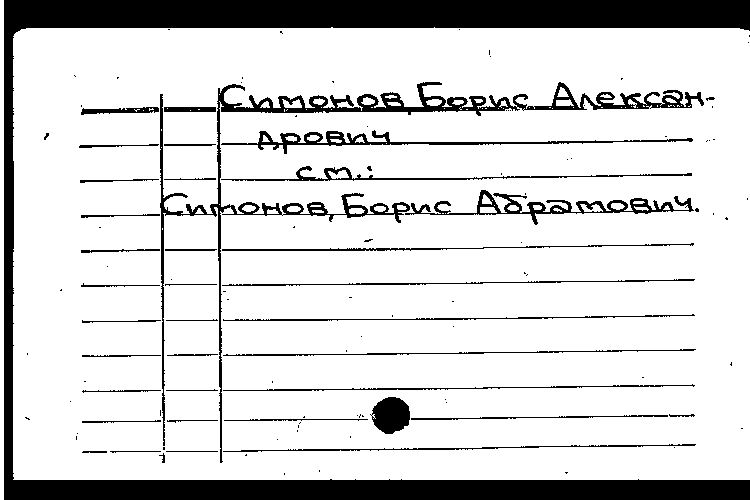 Симонов, Борис Алексан-
дрович
см.:
Симонов, Борис Абрамович.